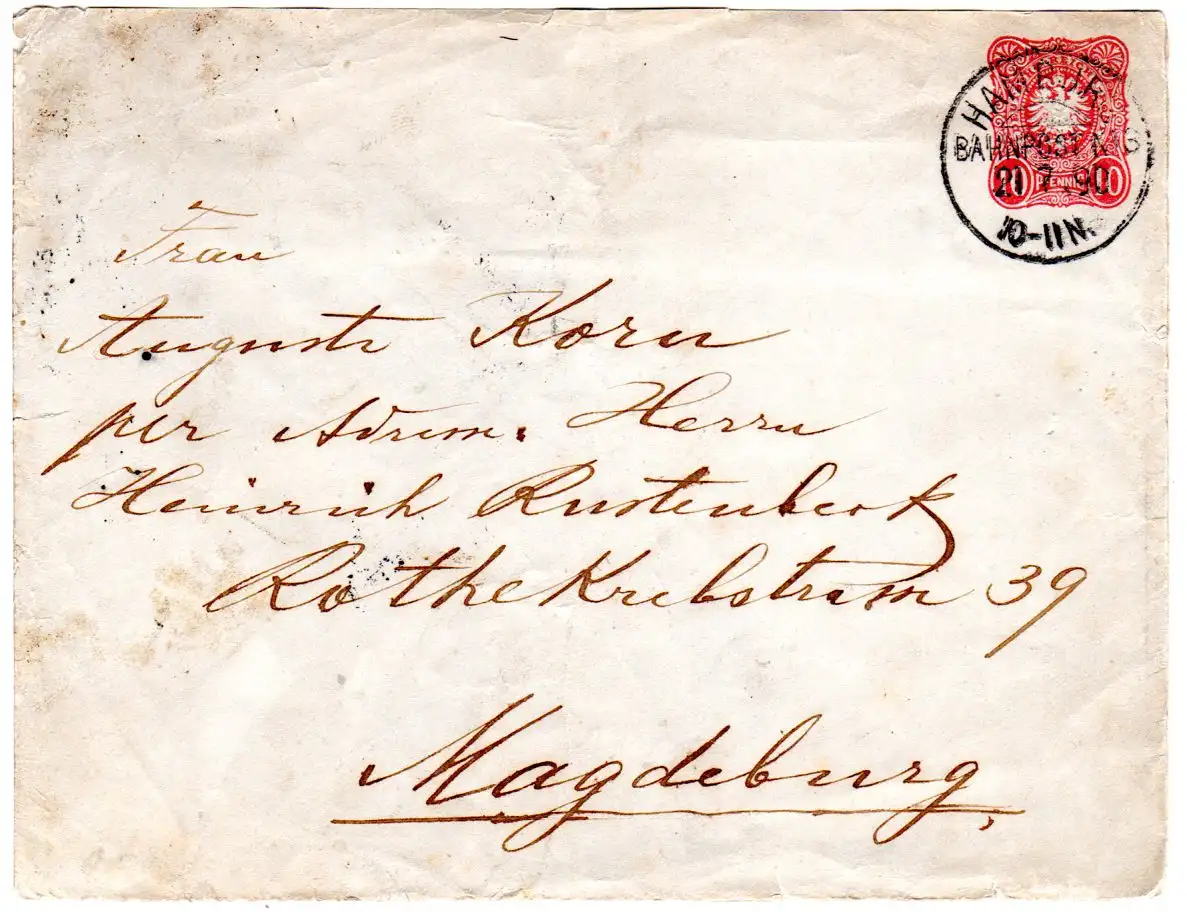 HAMBURG
BAHNPOST No 3
21 7 90
10-11 N.
10 PFENNIG 10
Frau
Auguste Korn
per Adresse. Herrn
Heinrich Rustenbeck
Rothe Krebstrasse 39
Magdeburg